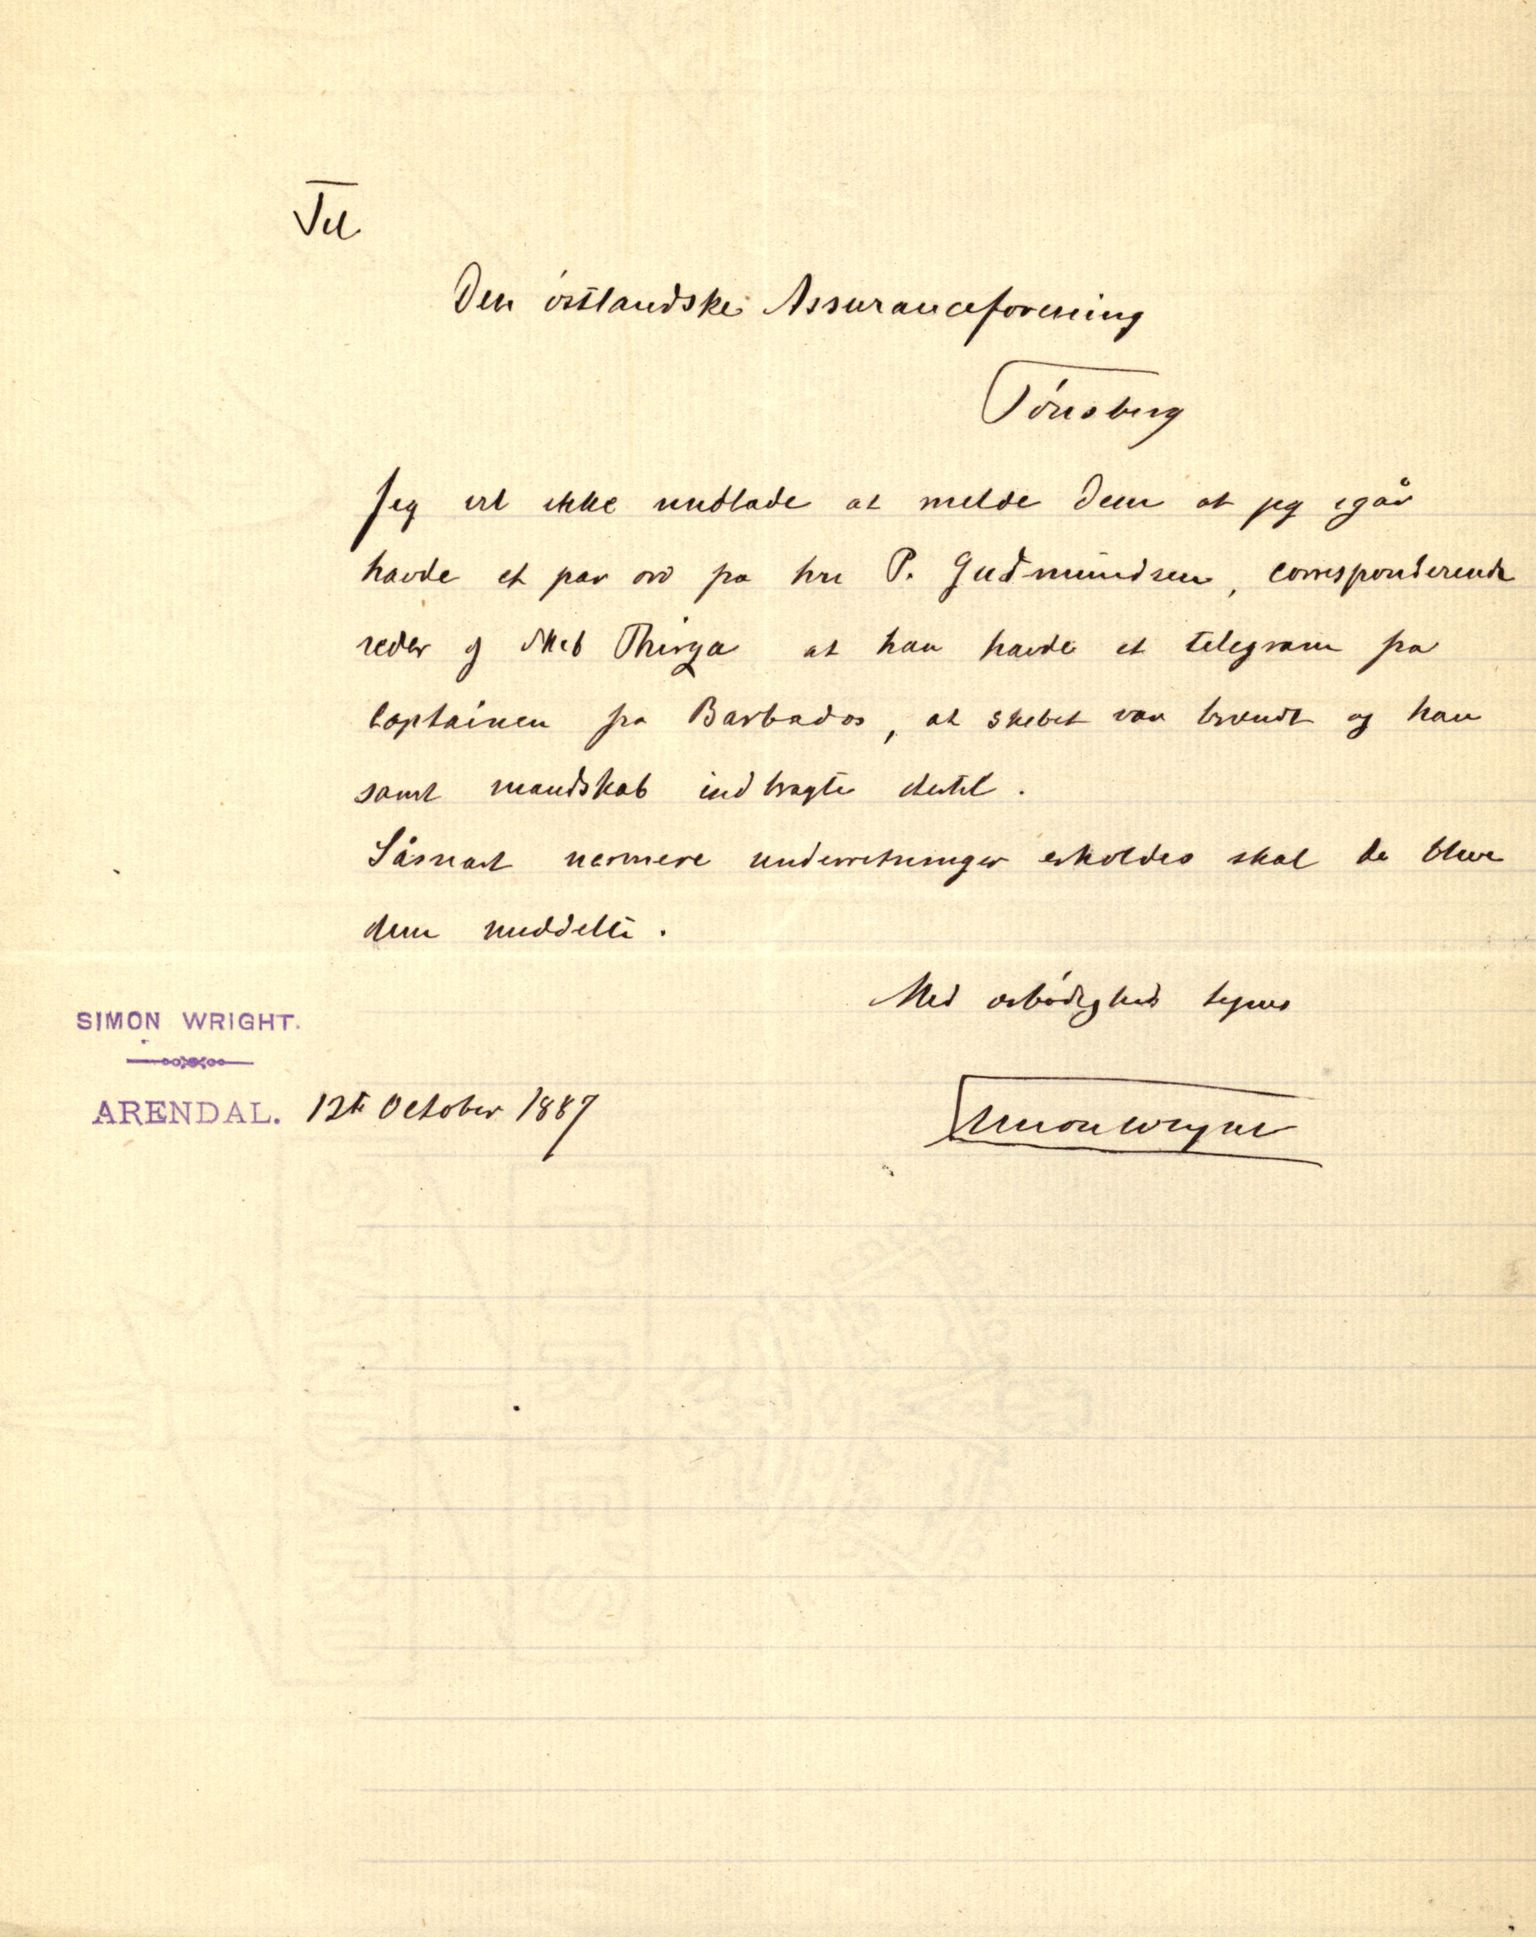 Til
Den östlandske Assuranceforening
Tönsberg
Jeg vil ikke undlade at melde Dem at jeg igår
havde et par ord fra hrr P. Gudmundsen, corresponderende
reder af skib Thirza at han havde et telegram fra
Captainen fra Barbados, at skebet var brændt og han
samt mandskab indbragte dertil.
Såsnart nermere underretninger erholdes skal de blive
dem meddelte.
Med ærbödighed tegner
SIMON WRIGHT.
ARENDAL. 12te October 1887
Simon Wright